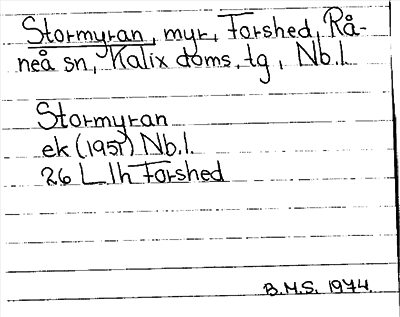 Stormyran, myr, Forshed, Rå-
neå sn, Kalix doms. tg, Nb.l.
Stormyran
ek (1951) Nb.l.
26 L lh Forshed
B.M.S. 1974.